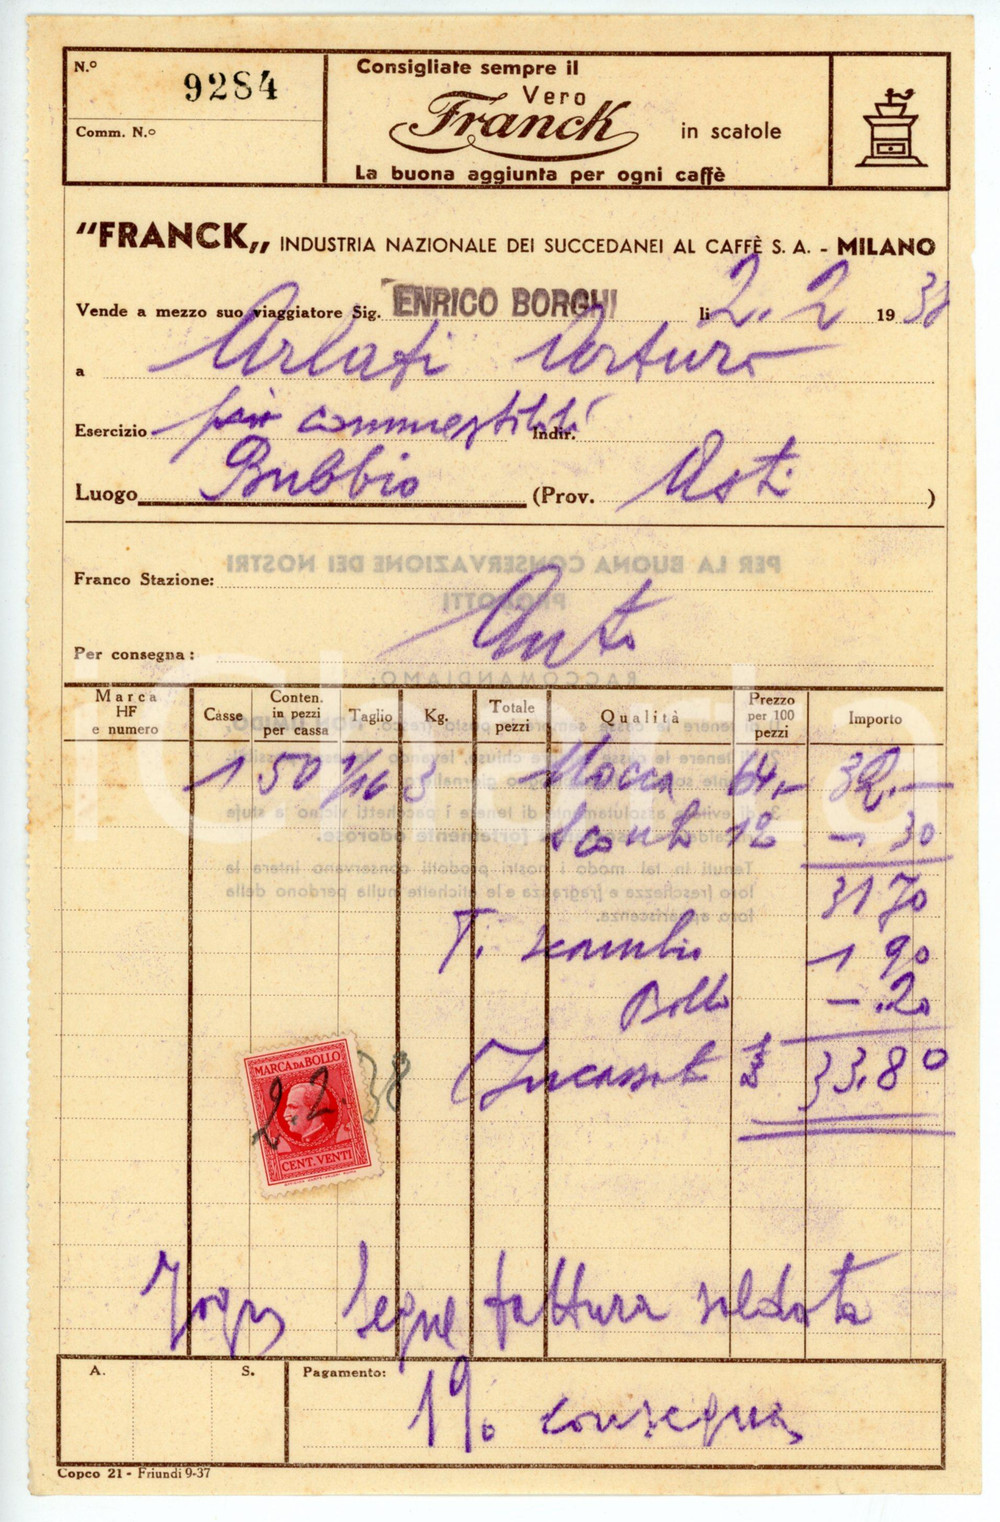 N.º 9284
Comm. N.º
Consigliate sempre il
Vero
Franck
in scatole
La buona aggiunta per ogni caffè
"FRANCK„ INDUSTRIA NAZIONALE DEI SUCCEDANEI AL CAFFÈ S. A. - MILANO
Vende a mezzo suo viaggiatore Sig. ENRICO BORGHI li 2.2 1938
a Arlati Arturo
Esercizio commestibili Indir.
Luogo Bubbio (Prov. Asti )
PER LA BUONA CONSERVAZIONE DEI NOSTRI
Franco Stazione:
PRODOTTI
Per consegna: Auto
RACCOMANDIAMO:
Marca HF e numero Casse Conten. in pezzi per cassa Taglio Kg. Totale pezzi Qualità Prezzo per 100 pezzi Importo
1 50 1/16 3 Mocca 64.- 32.-
Sconto 12 - 30
31 70
T. scambio 1 90
Bollo - .20
Incassato £ 33.80
MARCA DA BOLLO
2.2.38
CENT. VENTI
Segue fattura saldata
A. S. Pagamento:
1% consegna
Copco 21 - Friundi 9-37